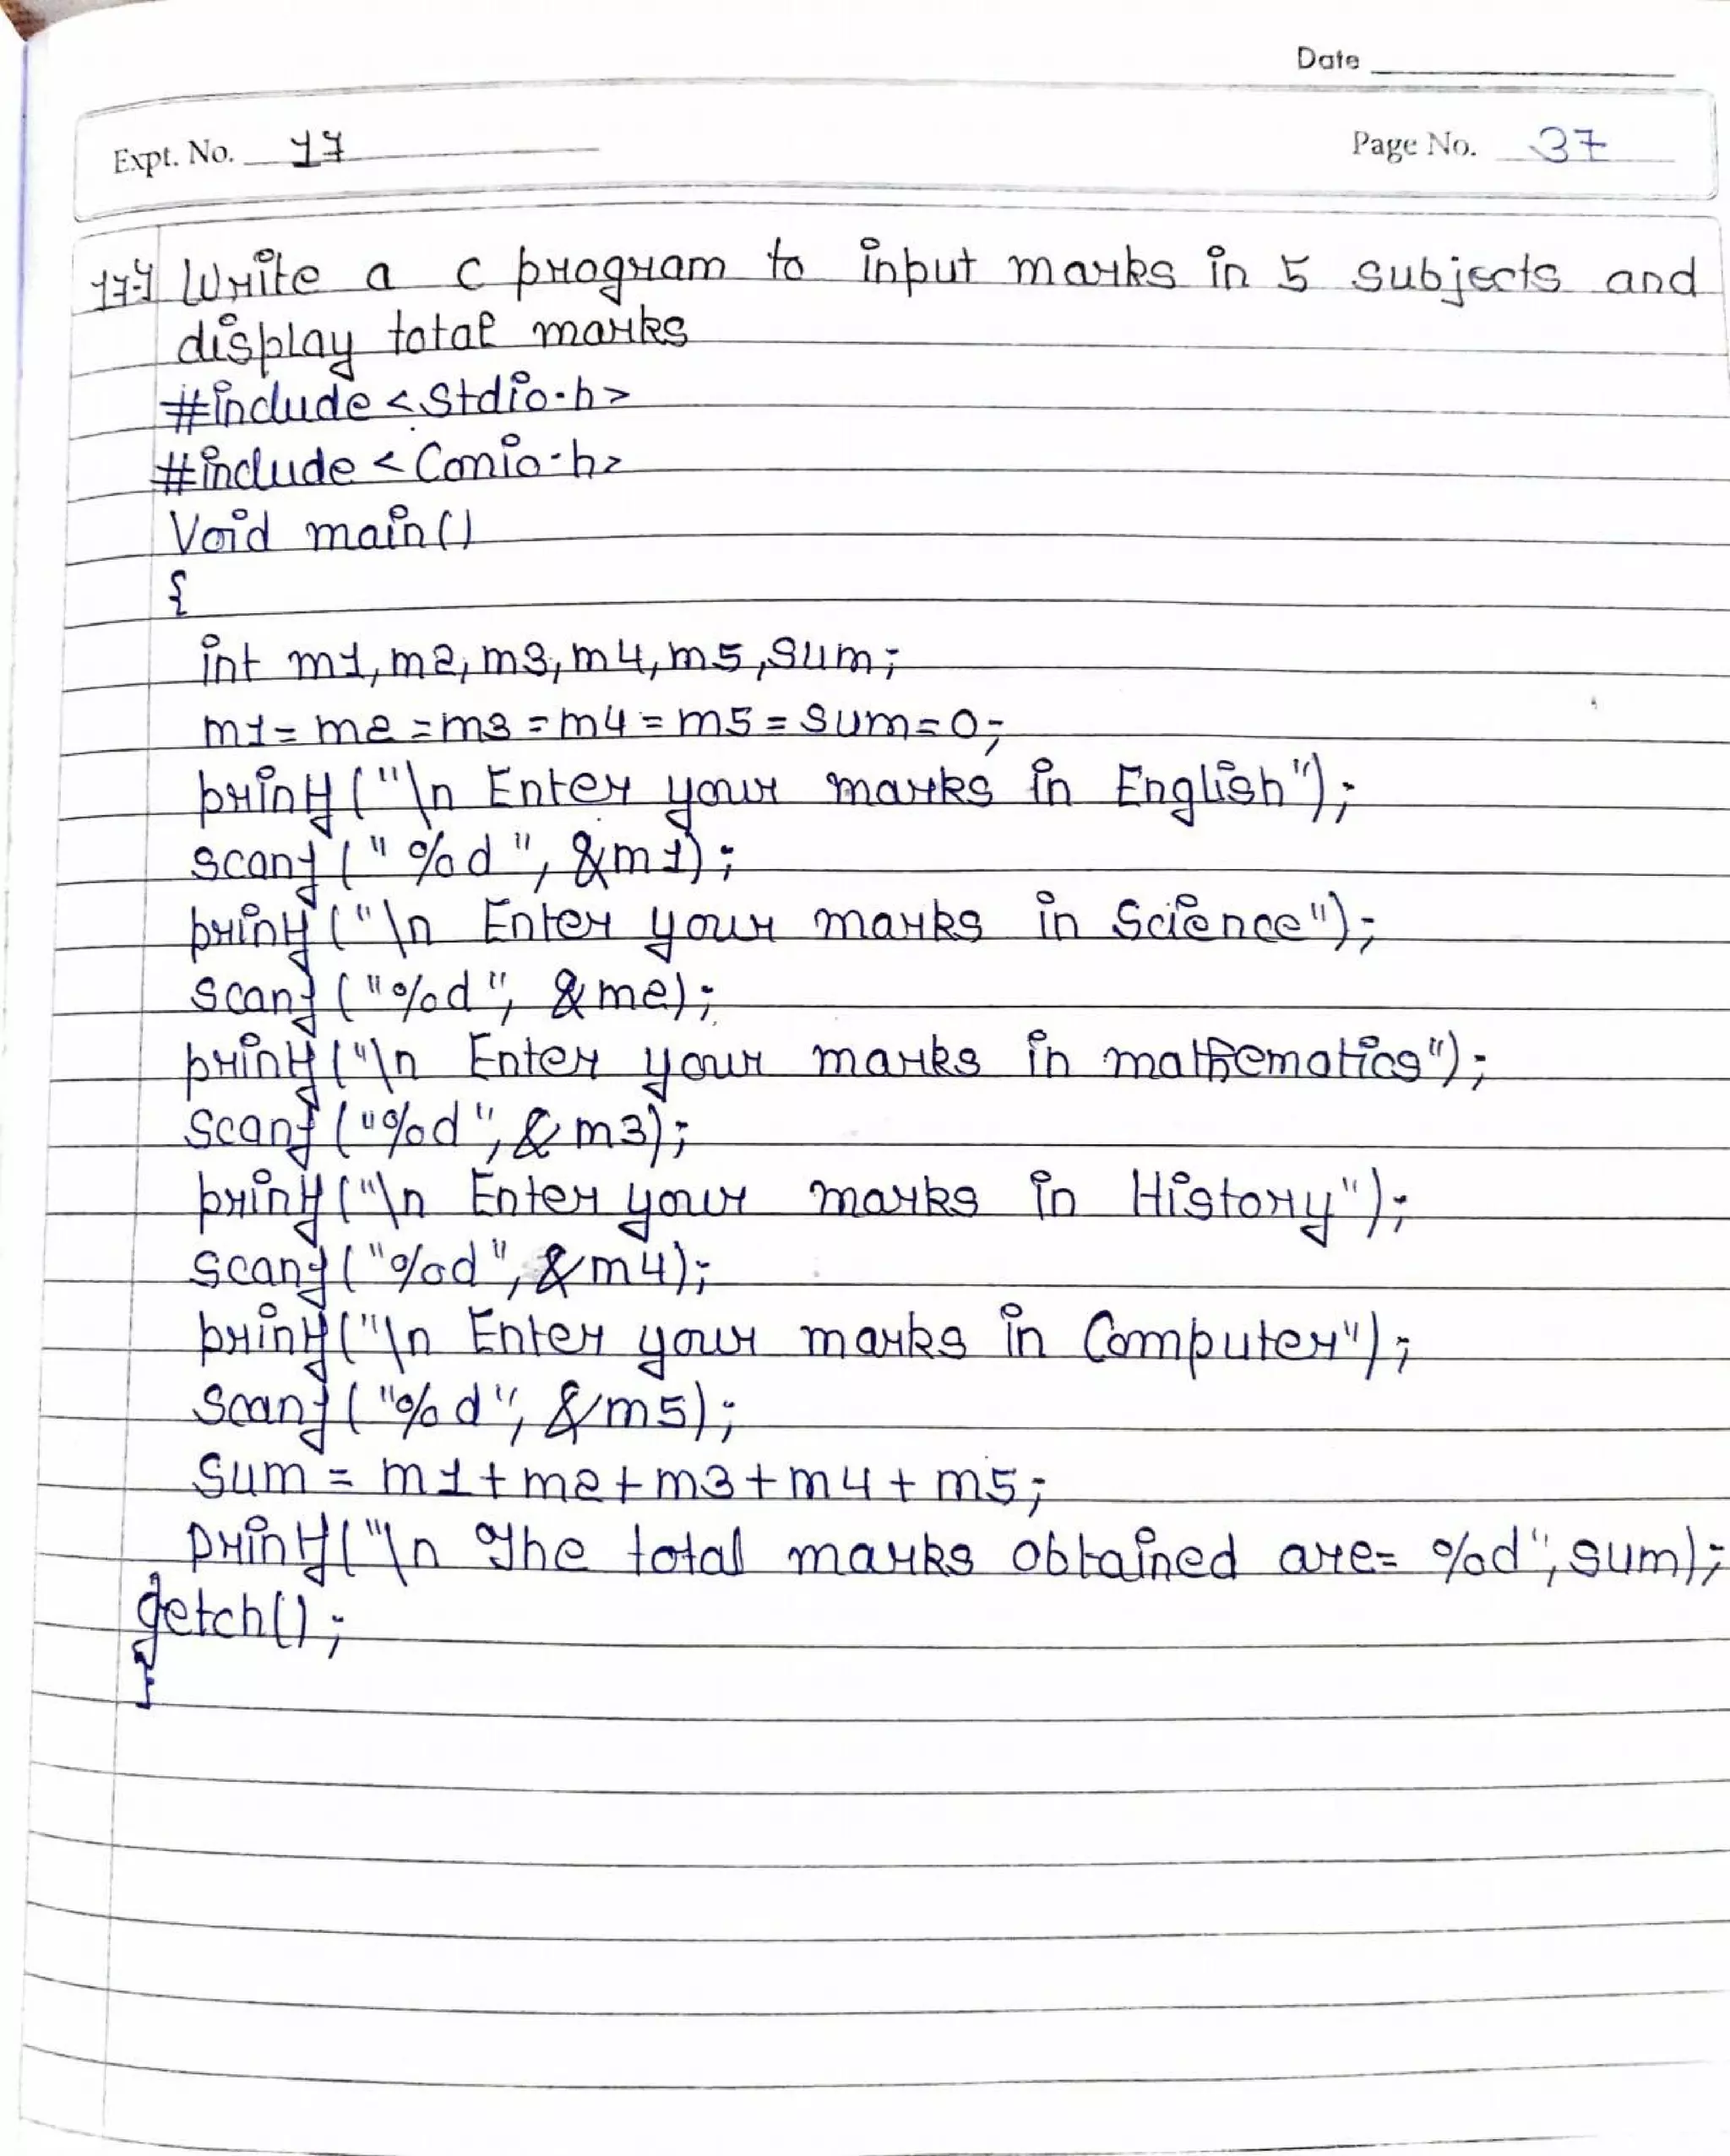 Date
Expt. No. 17
Page No. 37
17-) Write a c program to input marks in 5 subjects and
display total marks
#include <Stdio.h>
#include <Conio.h>
Void main()
{
int m1, m2, m3, m4, m5, Sum;
m1 = m2 = m3 = m4 = m5 = Sum = 0;
printf ("\n Enter your marks in English");
scanf (" %d ", &m1);
printf ("\n Enter your marks in Science");
scanf ("%d", &m2);
printf ("\n Enter your marks in mathematics");
Scanf ("%d", &m3);
printf ("\n Enter your marks in History");
scanf ("%d", &m4);
printf ("\n Enter your marks in Computer");
Scanf ("%d", &m5);
Sum = m1+m2+m3+m4+m5;
printf("\n The total marks obtained are= %d", sum);
getch();
}